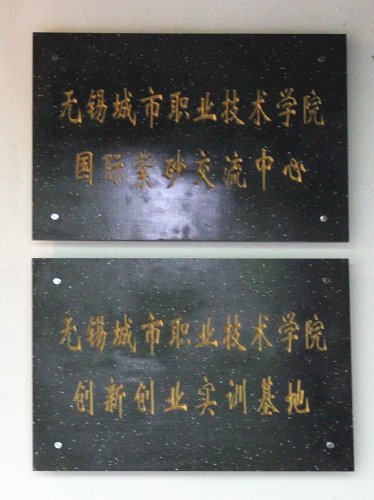 无锡城市职业技术学院
国际紫砂交流中心
无锡城市职业技术学院
创新创业实训基地